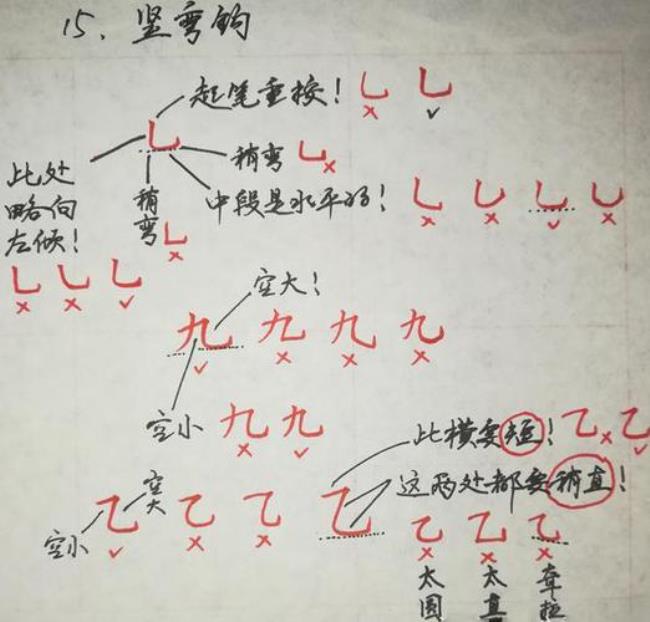 15、竖弯钩
起笔重按！
稍弯
中段是水平的！
稍弯
此处
略向
左倾！
空大！
九 九 九 九
空小 九 九
此横要短！ 乙 乙
这两处都要稍直！
空小 乙 空大 乙 乙 乙
乙 乙 乙
太圆
太直
耷拉